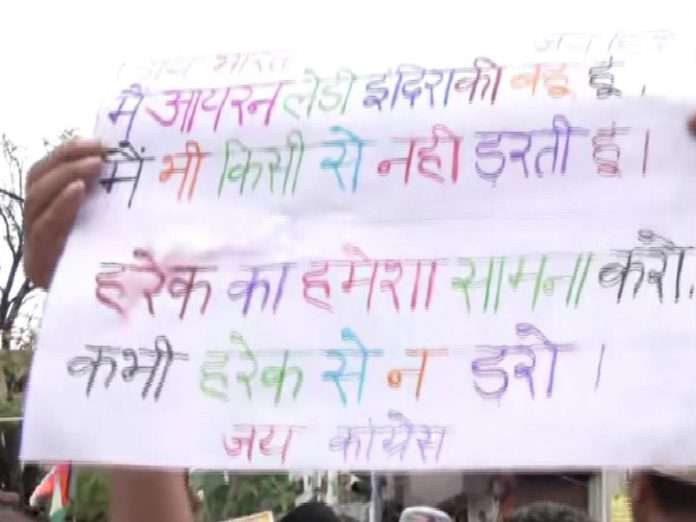 जय भारत जय हिन्द
मै आयरन लेडी इंदिरा की बहू हूं,
मैं भी किसी से नही ड़रती हूं।
हरेक का हमेशा सामना करो,
कभी हरेक से न ड़रो ।
जय कांग्रेस